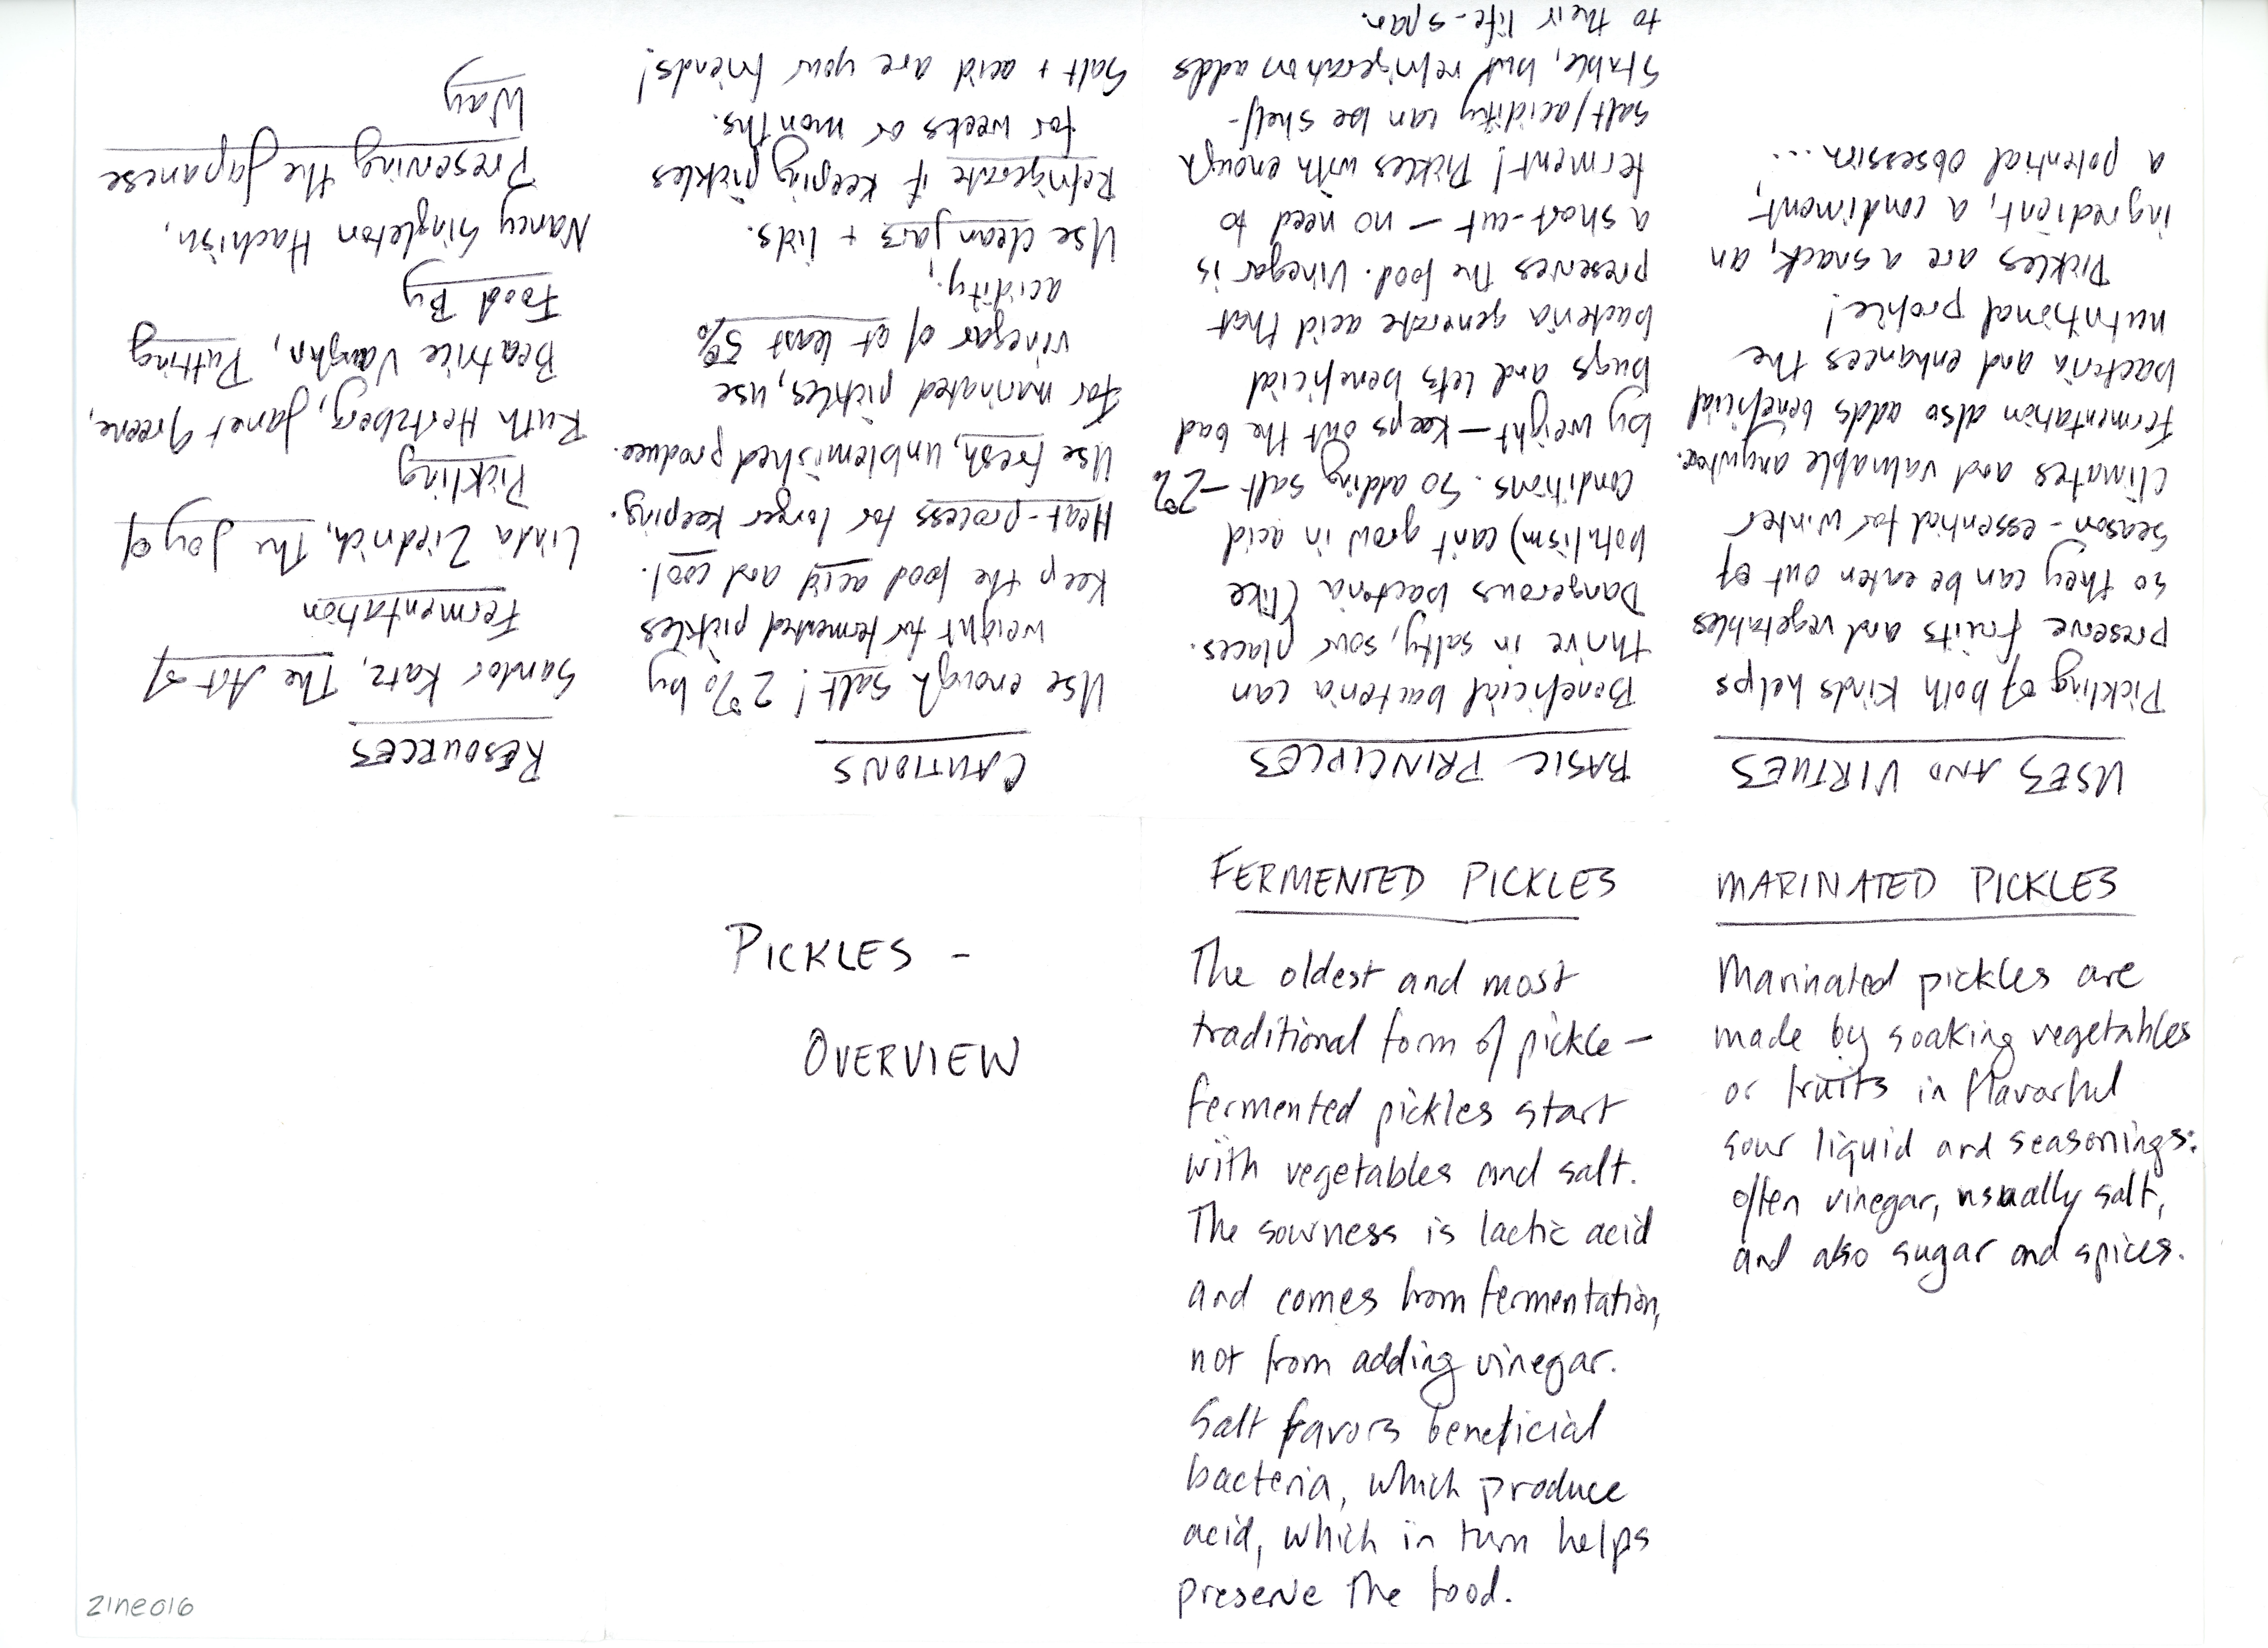 PICKLES -
OVERVIEW
FERMENTED PICKLES
The oldest and most
traditional form of pickle —
fermented pickles start
with vegetables and salt.
The sourness is lactic acid
and comes from fermentation,
not from adding vinegar.
Salt favors beneficial
bacteria, which produce
acid, which in turn helps
preserve the food.
MARINATED PICKLES
Marinated pickles are
made by soaking vegetables
or fruits in flavorful
sour liquid and seasonings:
often vinegar, usually salt,
and also sugar and spices.
USES AND VIRTUES
Pickling of both kinds helps
preserve fruits and vegetables
so they can be eaten out of
season - essential for winter
climates and valuable anywhere.
Fermentation also adds beneficial
bacteria and enhances the
nutritional profile!
Pickles are a snack, an
ingredient, a condiment,
a potential obsession...
BASIC PRINCIPLES
Beneficial bacteria can
thrive in salty, sour places.
Dangerous bacteria (like
botulism) can't grow in acid
conditions. So adding salt - 2%
by weight - keeps out the bad
bugs and lets beneficial
bacteria generate acid that
preserves the food. Vinegar is
a short-cut - no need to
ferment! Pickles with enough
salt/acidity can be shelf-
stable, but refrigeration adds
to their life-span.
CAUTIONS
Use enough salt! 2% by
weight for fermented pickles
Keep the food acid and cool.
Heat-process for longer keeping.
Use fresh, unblemished produce.
For marinated pickles, use
vinegar of at least 5%
acidity.
Use clean jars + lids.
Refrigerate if keeping pickles
for weeks or months.
Salt + acid are your friends!
RESOURCES
Sandor Katz, The Art of
Fermentation
Linda Ziedrich, The Joy of
Pickling
Ruth Hertzberg, Janet Greene,
Beatrice Vaughn, Putting
Food By
Nancy Singleton Hachisu,
Preserving the Japanese
Way
zine016